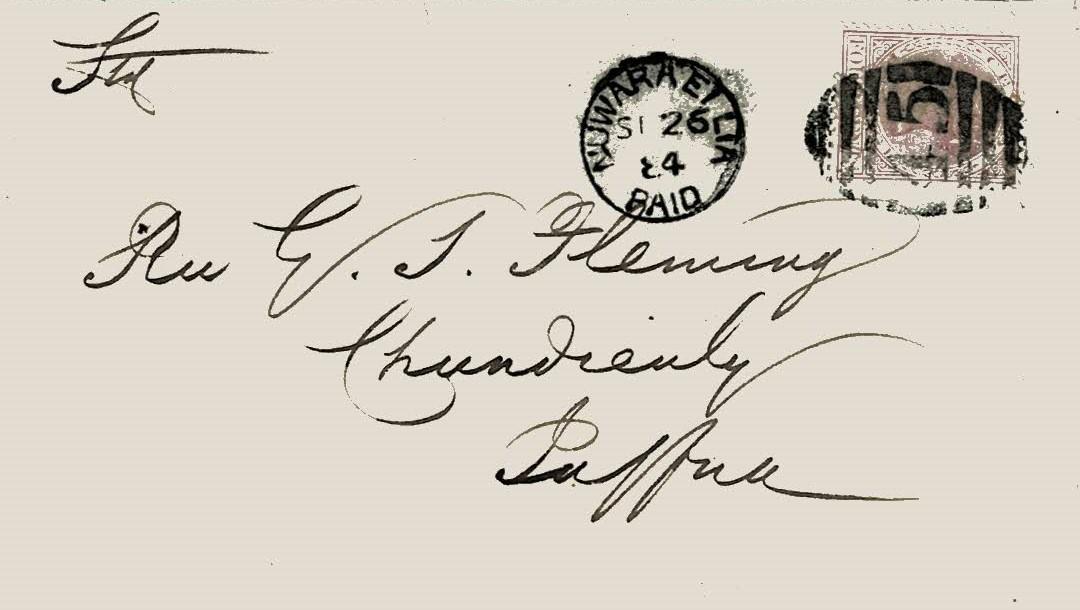 NUWARA ELLIA
26
84
PAID
5
Rev G. T. Fleming
Chundiculy
Jaffna